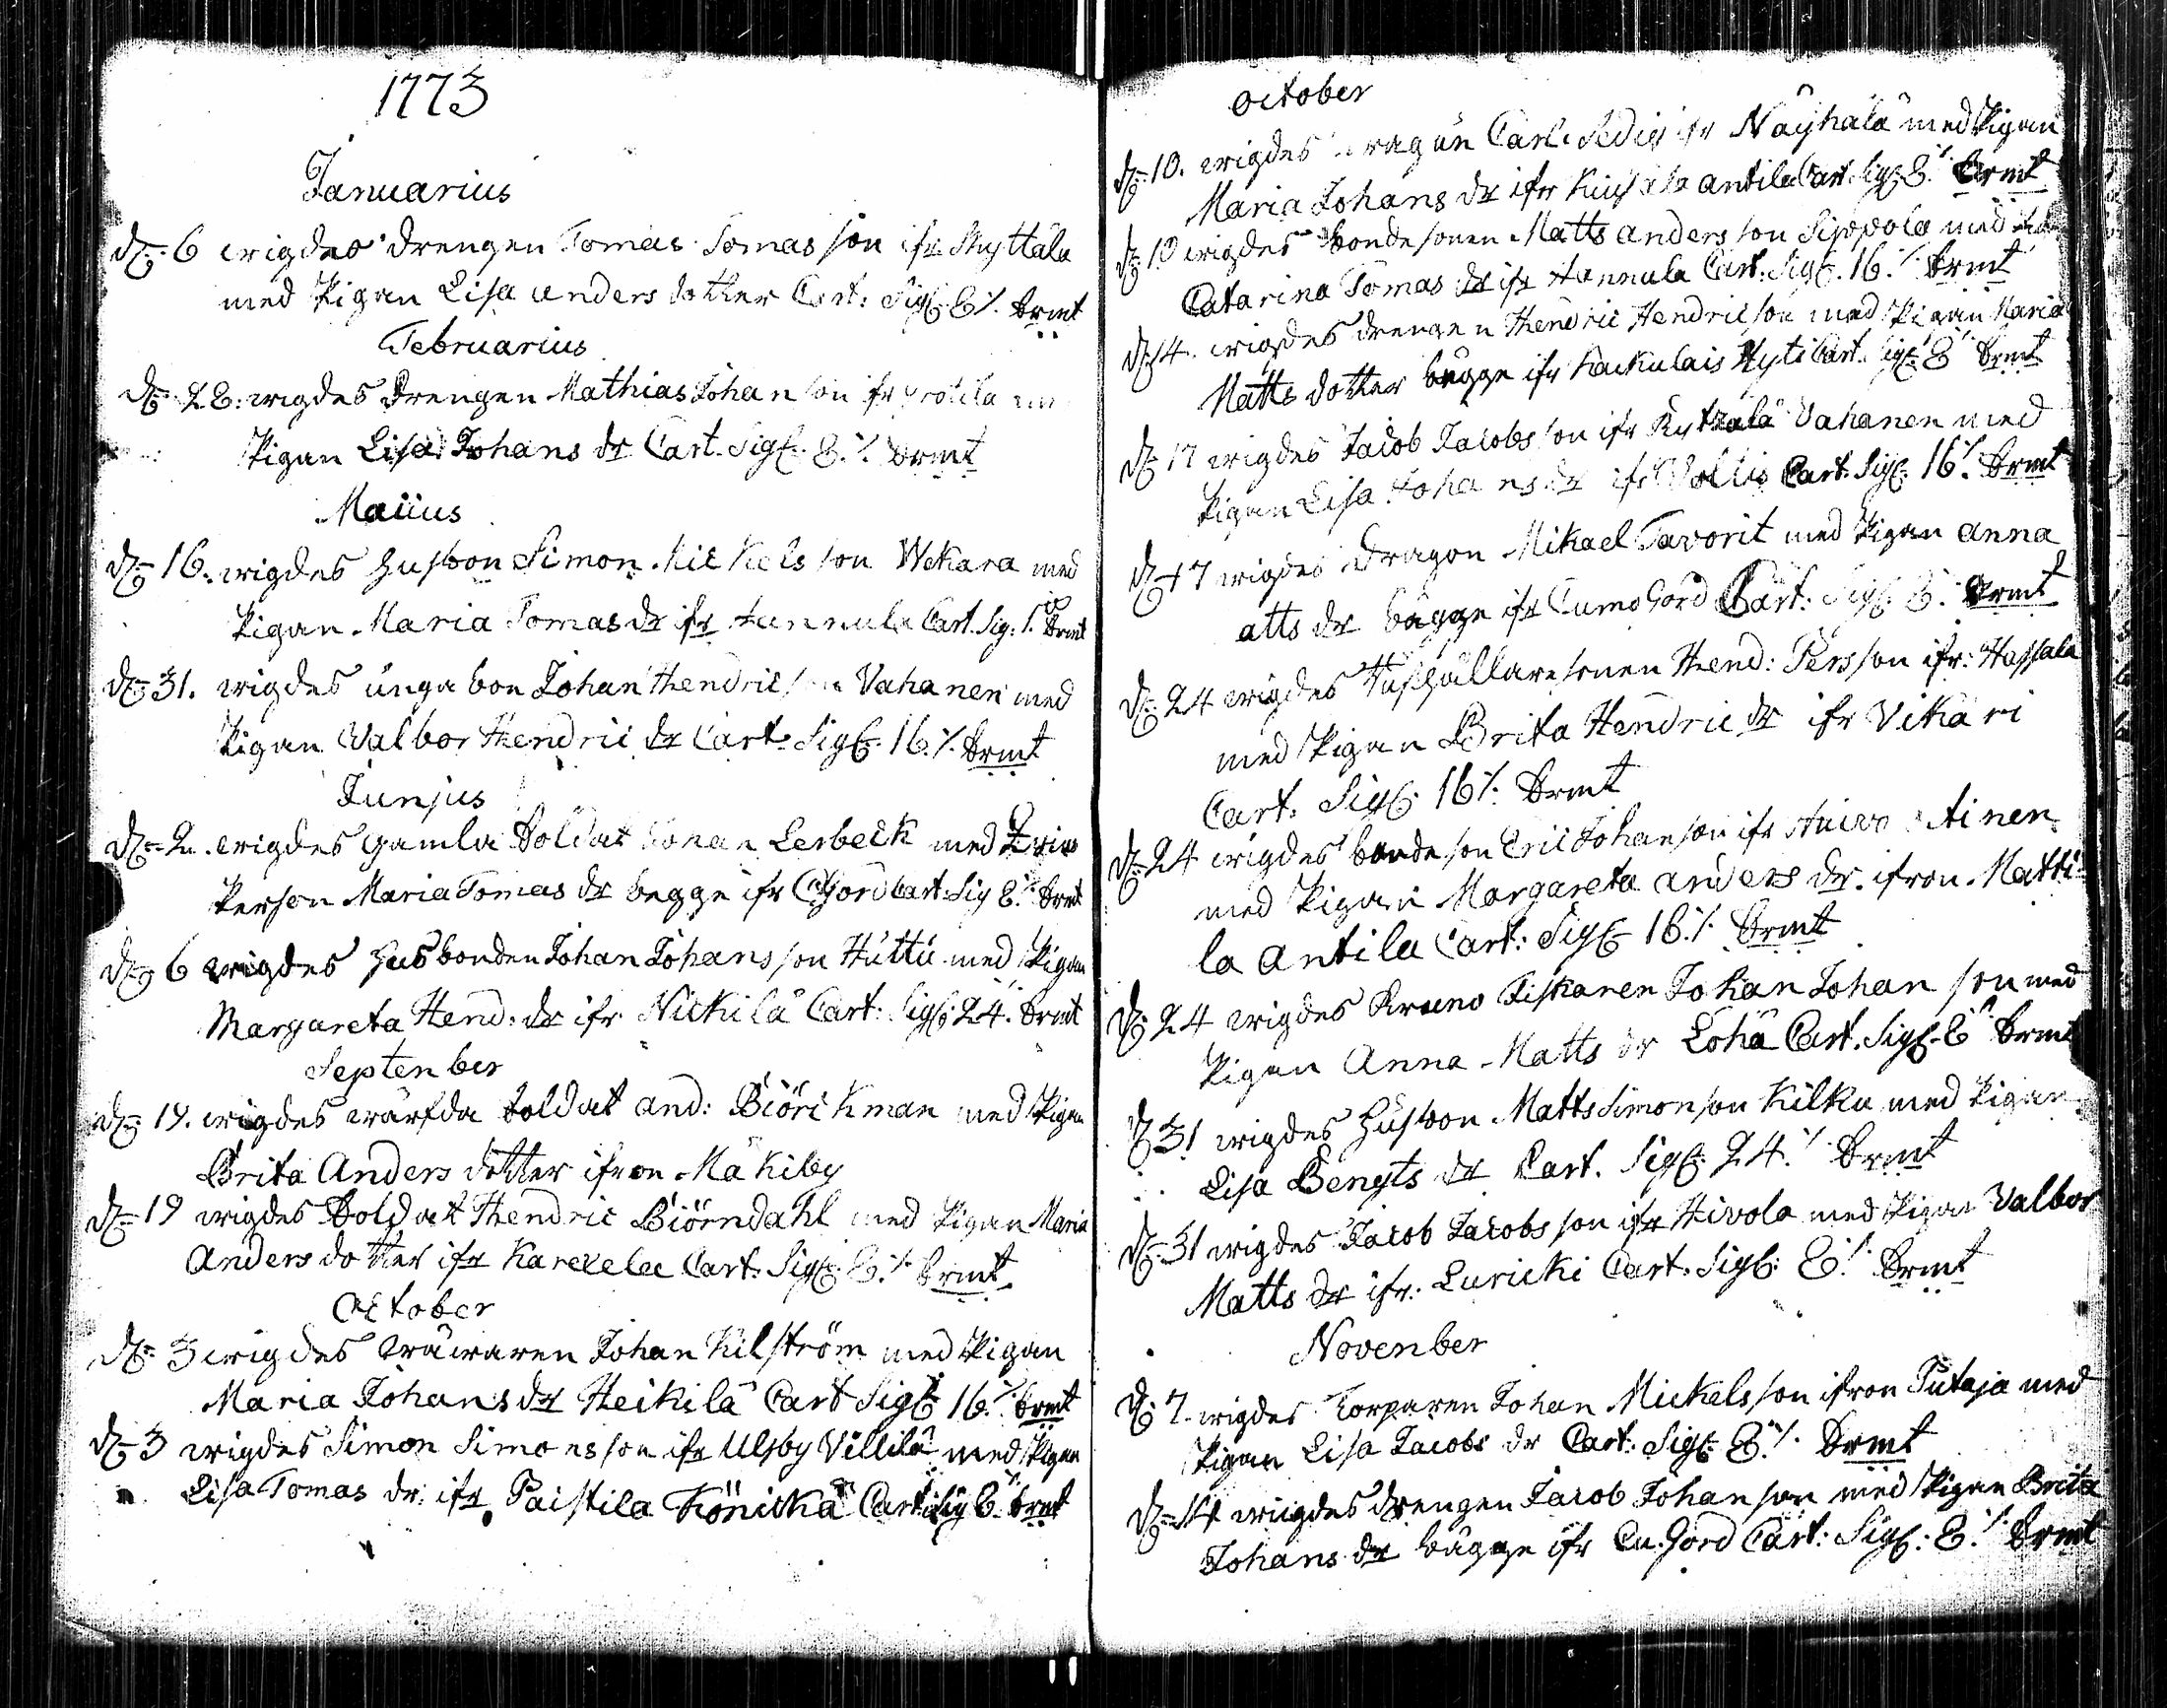 1773
Januarius
d: 6 wigdes drengen Tomas Tomas son ifr Knyttälä
med Pigan Lisa anders dotter Cart: Sigl. 8 /. Srmt
Februarius
d: 28. wigdes Drengen Mathias Johan son ifr
Pigan Lisa Johans dr Cart. Sigl. 8 /. Srmt
Maiius
d: 16. wigdes Husbon Simon Mickels son Wekara med
Pigan Maria Tomas dr ifr Hannula Cart. Sig: Srmt
d: 31. wigdes unga bon Johan Hendric son Vahanen med
Pigan Valbor Hendric dr Cart. Sigl. 16 /. Srmt
Junjus
d: 2. wigdes gamla Soldat Johan Lerbeck med
Person Maria Tomas dr begge ifr CGord Cart. Sig 8 /. Srmt
d: 6 wigdes Husbonden Johan Johans son Huttu med Pigan
Margareta Hend: dr ifr. Nickilä Cart: Sigl: 24 /. Srmt
Septenber
d: 19. wigdes wärfda Soldat and: Biörckman med Pigan
Brita Anders dotter ifron Mäkiby
d: 19 wigdes Soldat Hendric Biörndahl med Pigan Maria
Anders dotter ifr Karekela Cart: Sigl: 8 /. Srmt
October
d: 3 wigdes Johan Kilström med Pigan
Maria Johans dr Heikilä Cart Sigl 16 /. Srmt
d: 3 wigdes Simon Simons son ifr Ulsby Villilä med Pigan
Lisa Tomas dr. ifr. Paistila Köniskä Cart. Sig 8 /. Srmt
October
d: 10. wigdes Dragun Carl Sedig ifr Näyhälä med Pigan
Maria Johans dr ifr antila Cart. Sigl. 8 /. Srmt
d: 10 wigdes bondesonen Matts anders son med
Catarina Tomas dr ifr Hannula Cart. Sigl. 16 /. Srmt
d: 14. wigdes drengen Hendric Hendric son med Pigan Maria
Matts dotter bägge ifr Kackulais Hyti Cart. Sigl. 8 /. Srmt
d: 17 wigdes Jacob Jacobs son ifr Vahanen med
Pigan Lisa Johans dr ifr Cart. Sigl. 16 /. Srmt
d: 17 wigdes Dragon Mikael Favorit med Pigan anna
atts dr bägge ifr CumoGord Cart: Sigl. 8 /. Srmt
d: 24 wigdes Hushållaresonen Hend: Pers son ifr: Hassala
med Pigan Brita Hendric dr ifr Vikari
Cart. Sigl. 16 /. Srmt
d: 24 wigdes bonde son Eric Johan son ifr
med Pigan Margareta anders dr. ifron Matti
la Antila Cart: Sigl 16 /. Srmt
d: 24 wigdes Krono Fiskaren Johan Johan son med
Pigan Anna Matts dr Lohä Cart. Sigl. 8 /. Srmt
d: 31 wigdes Husbon Matts Simon son Kilku med Pigan
Lisa Bengts dr Cart. Sigl: 24 /. Srmt
d: 31 wigdes Jacob Jacobs son ifr Hivola med Pigan Valbor
Matts dr ifr: Luricki Cart. Sigl: 8 /. Srmt
Novenber
d: 7. wigdes Torparen Johan Mickels son ifron Putaja med
Pigan Lisa Jacobs dr Cart: Sigl: 8 /. Srmt
d: 14 wigdes drengen Jacob Johan son med Pigan Brita
Johans dr bägge ifr Cu.Gord Cart: Sigl: 8 /. Srmt